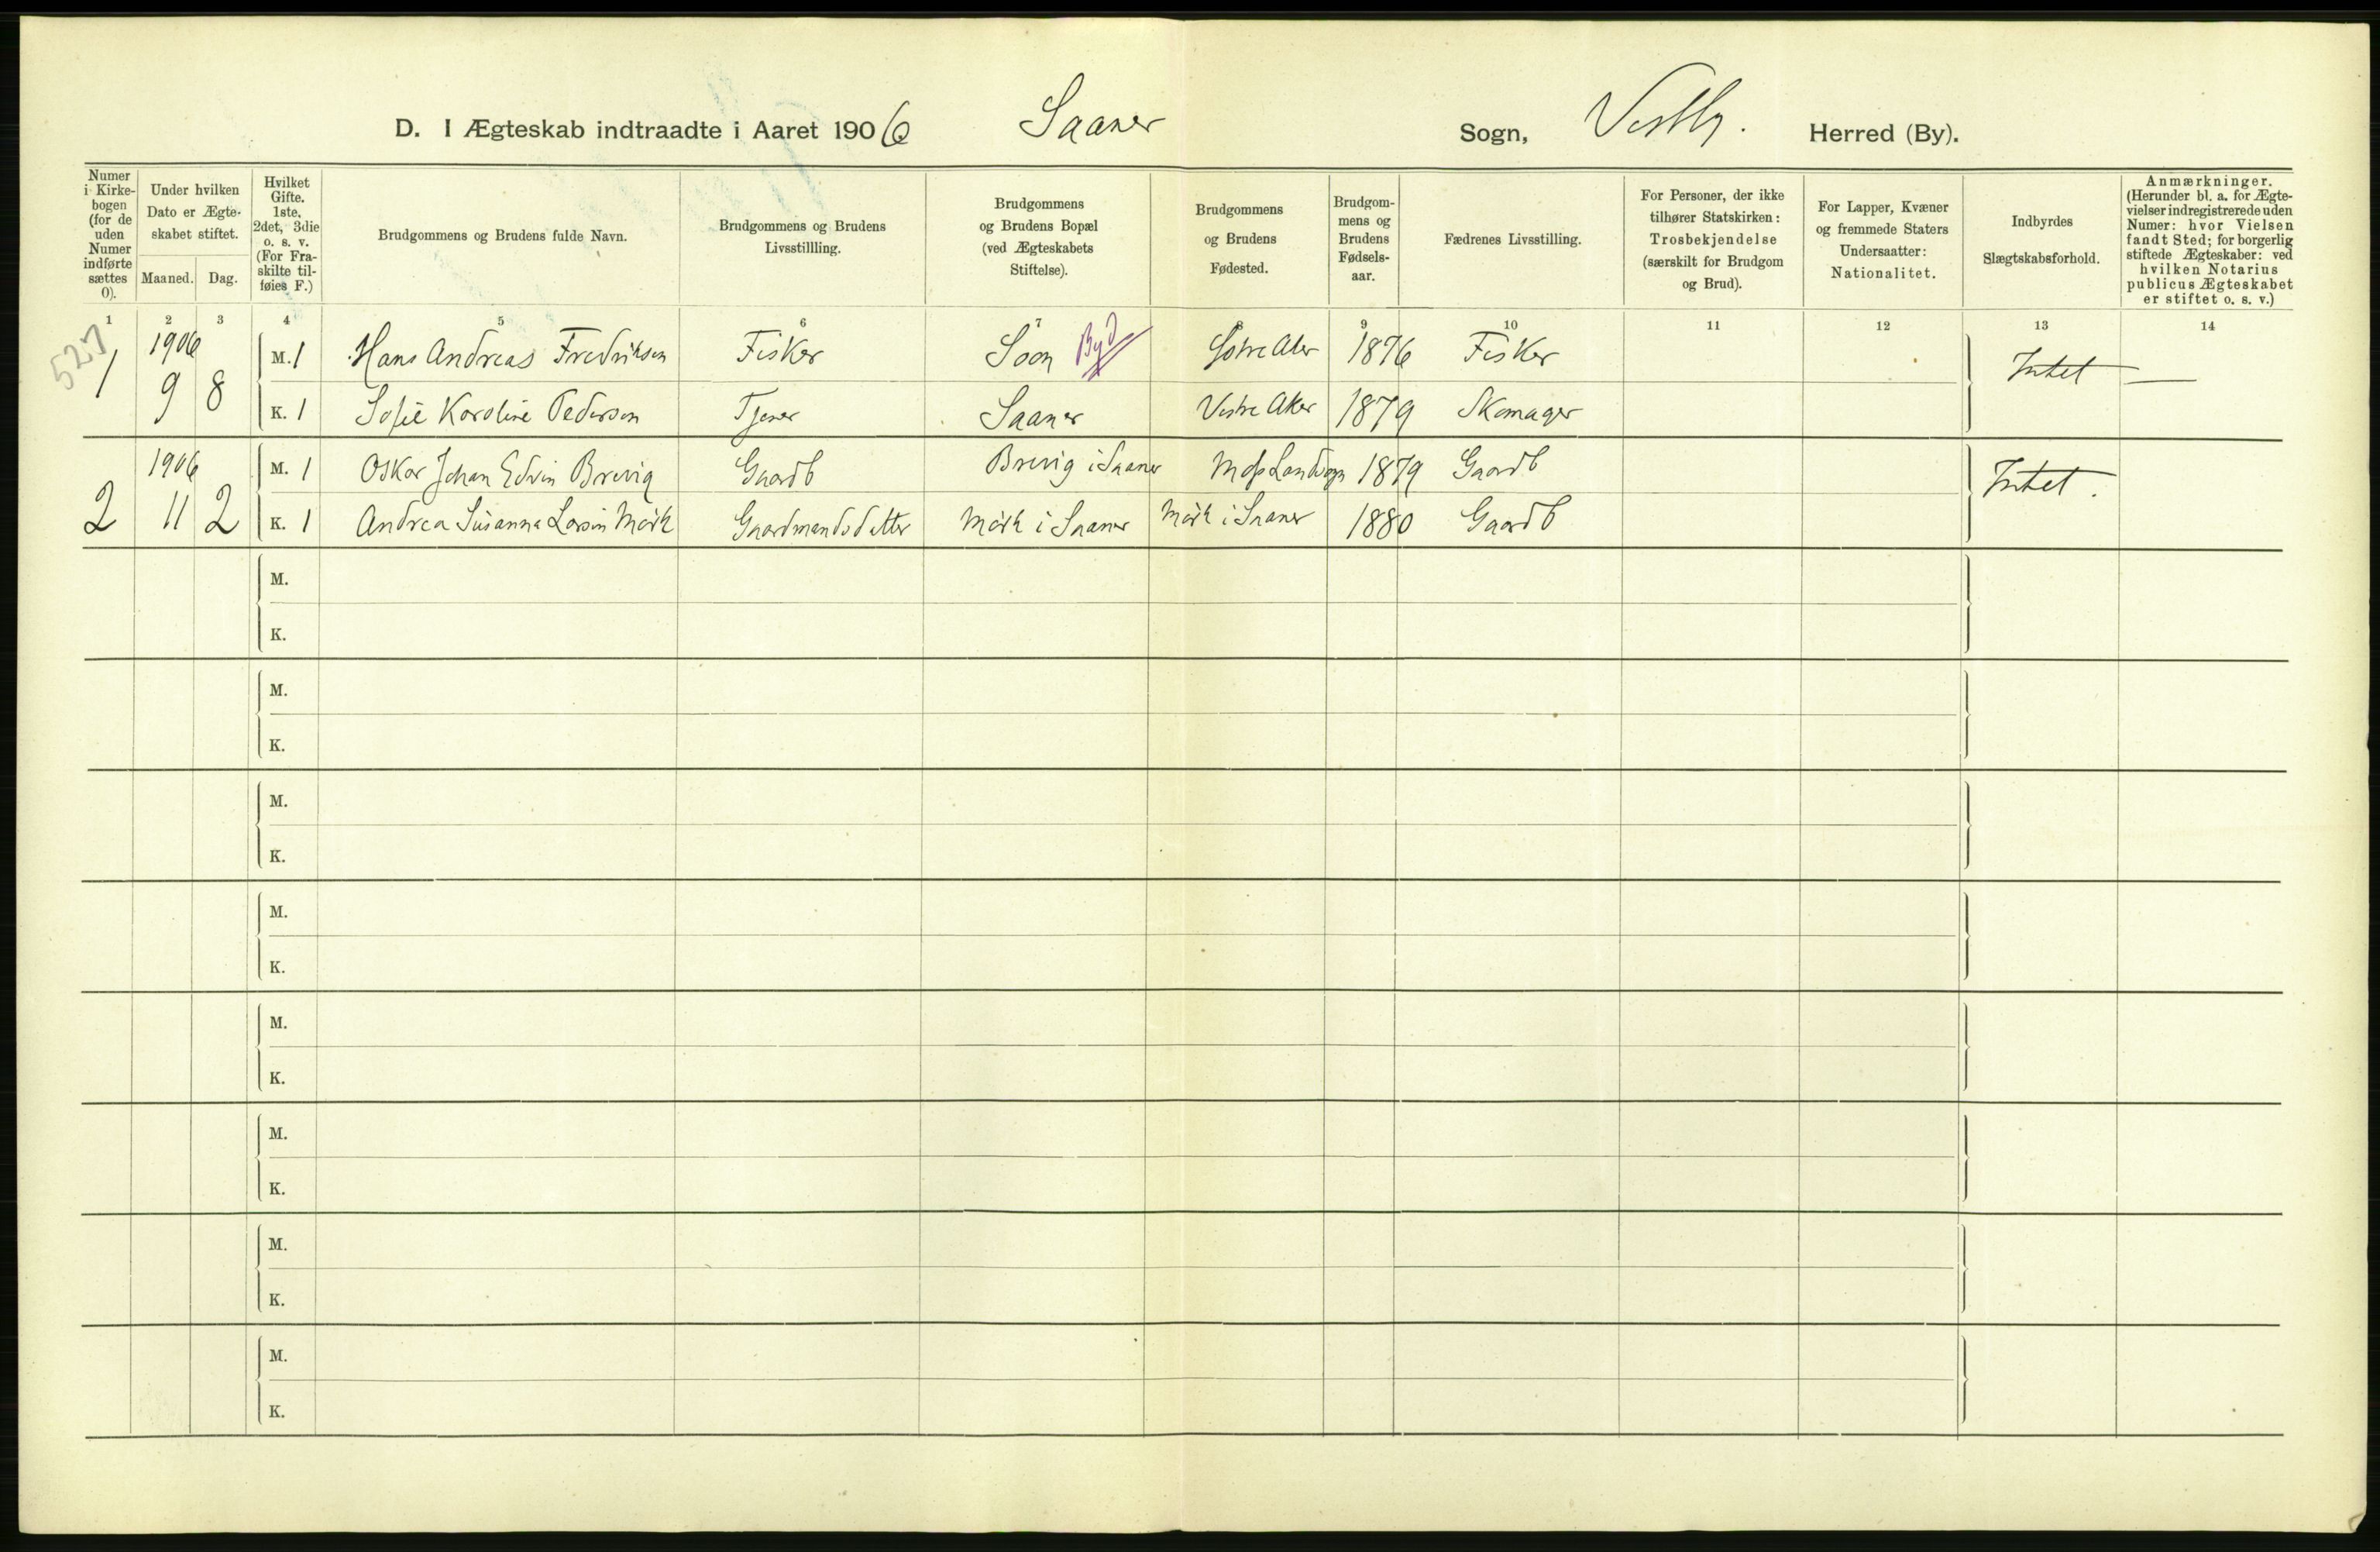 D. I Ægteskab indtraadte i Aaret 1906 Saaner Sogn, Vestby. Herred (By).
Numer i Kirkebogen (for de uden Numer indførte sættes 0).
Under hvilken Dato er Ægteskabet stiftet.
Maaned. Dag.
Hvilket Gifte. 1ste, 2det, 3die o. s. v. (For Fraskilte tilføies F.)
Brudgommens og Brudens fulde Navn.
Brudgommens og Brudens Livsstillling.
Brudgommens og Brudens Bopæl (ved Ægteskabets Stiftelse).
Brudgommens og Brudens Fødested.
Brudgommens og Brudens Fødselsaar.
Fædrenes Livsstilling.
For Personer, der ikke tilhører Statskirken: Trosbekjendelse (særskilt for Brudgom og Brud).
For Lapper, Kvæner og fremmede Staters Undersaatter: Nationalitet.
Indbyrdes Slægtskabsforhold.
Anmærkninger. (Herunder bl. a. for Ægtevielser indregistrerede uden Numer: hvor Vielsen fandt Sted; for borgerlig stiftede Ægteskaber: ved hvilken Notarius publicus Ægteskabet er stiftet o. s. v.)
1 2 3 4 5 6 7 8 9 10 11 12 13 14
527
1 1906 9 8 M. 1 Hans Andreas Fredriksen Fisker Soon Byd 1876 Fisker Intet —
K. 1 Sofie Karoline Pedersen Tjener Saaner Vestre Aker 1879 Skomager
2 1906 11 2 M. 1 Oskar Johan Edvin Brevig Gaardb Brevig i Saaner Moss Landsogn 1879 Gaardb Intet.
K. 1 Andrea Susanna Larsin Mørk Gaardmandsdatter Mørk i Saaner Mørk i Saaner 1880 Gaardb
M.
K.
M.
K.
M.
K.
M.
K.
M.
K.
M.
K.
M.
K.
M.
K.